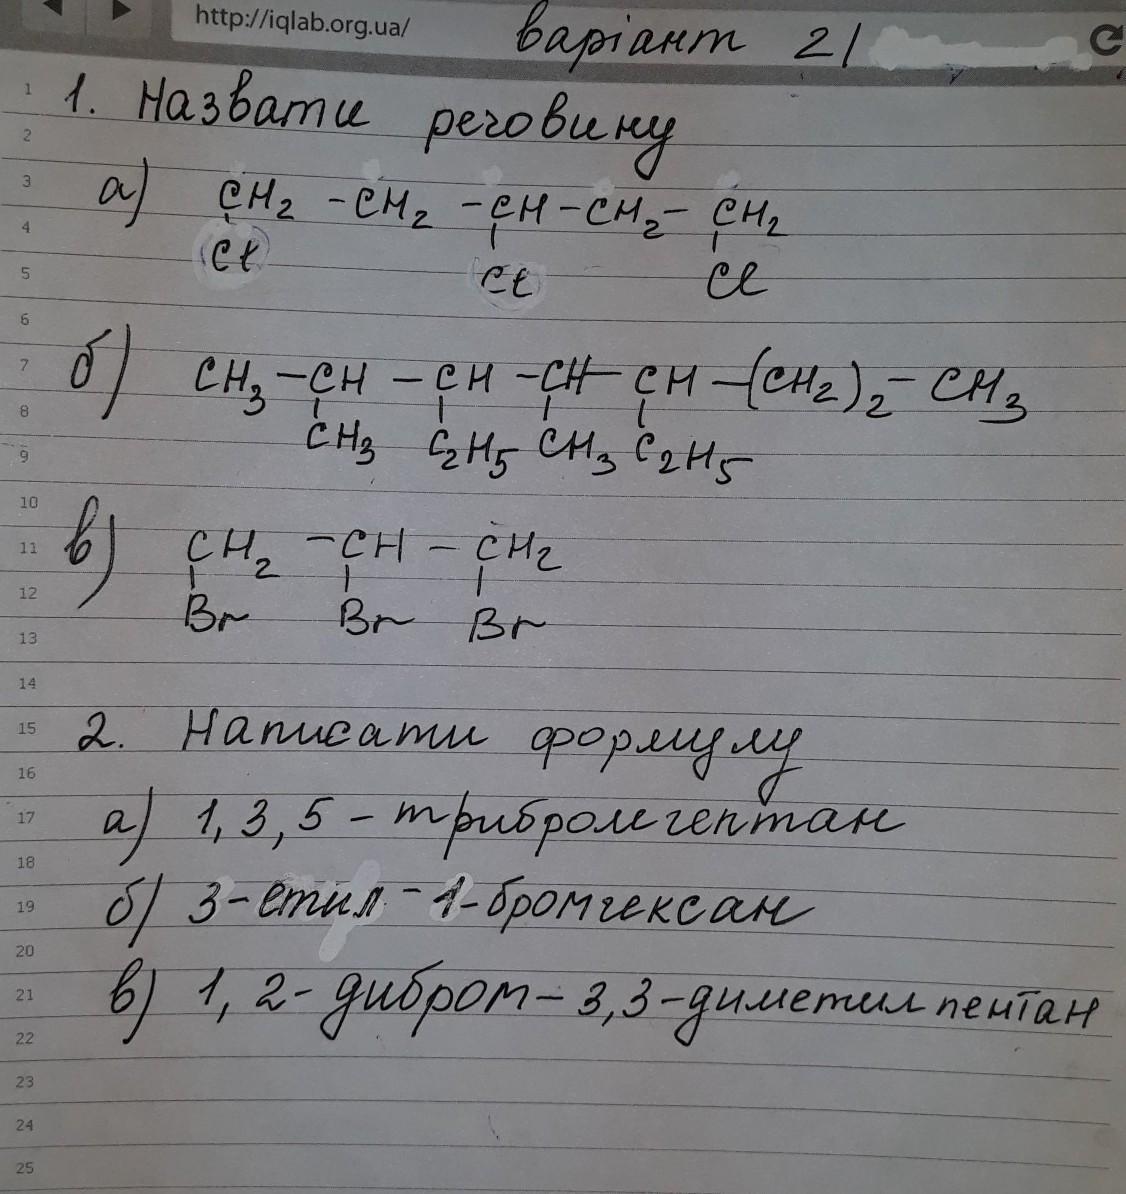 http://iqlab.org.ua/ варіант 21
1. Назвати речовину
а) CH2 - CH2 - CH - CH2 - CH2
Cl Cl Cl
б) CH3 - CH - CH - CH - CH - (CH2)2 - CH3
CH3 C2H5 CH3 C2H5
в) CH2 - CH - CH2
Br Br Br
2. Написати формулу
а) 1, 3, 5 - трибромгептан
б) 3 - етил - 1 - бромгексан
в) 1, 2 - дибром - 3,3 - диметилпентан
1
2
3
4
5
6
7
8
9
10
11
12
13
14
15
16
17
18
19
20
21
22
23
24
25